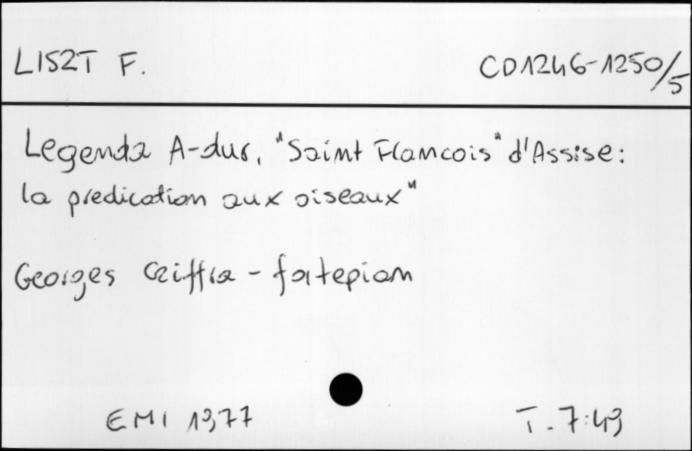 LISZT F.
CD1246-1250/5
Legenda A-dur, "Saint Francois" d'Assise:
la predication aux oiseaux"
Georges Cziffra - fortepian
EMI 1977
T. 7:43